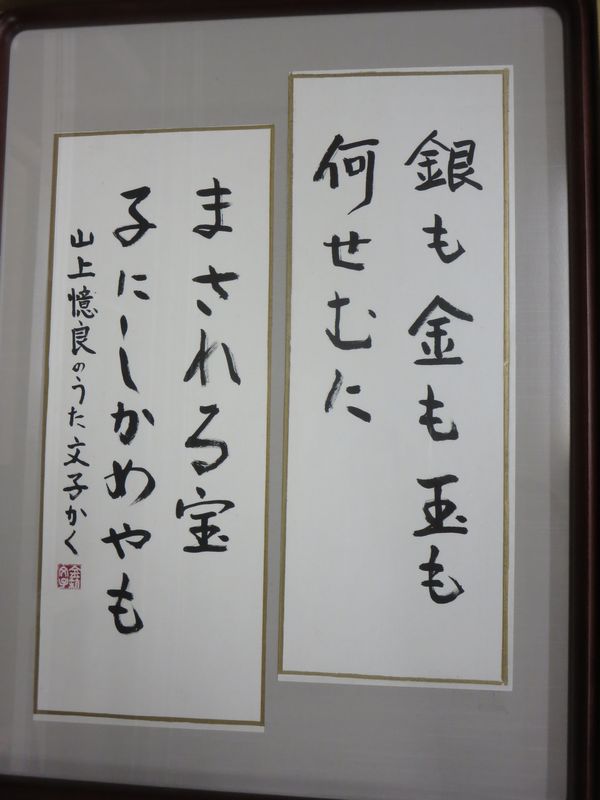 銀も金も玉も
何せむに
まされる宝
子にしかめやも
山上憶良のうた文子かく